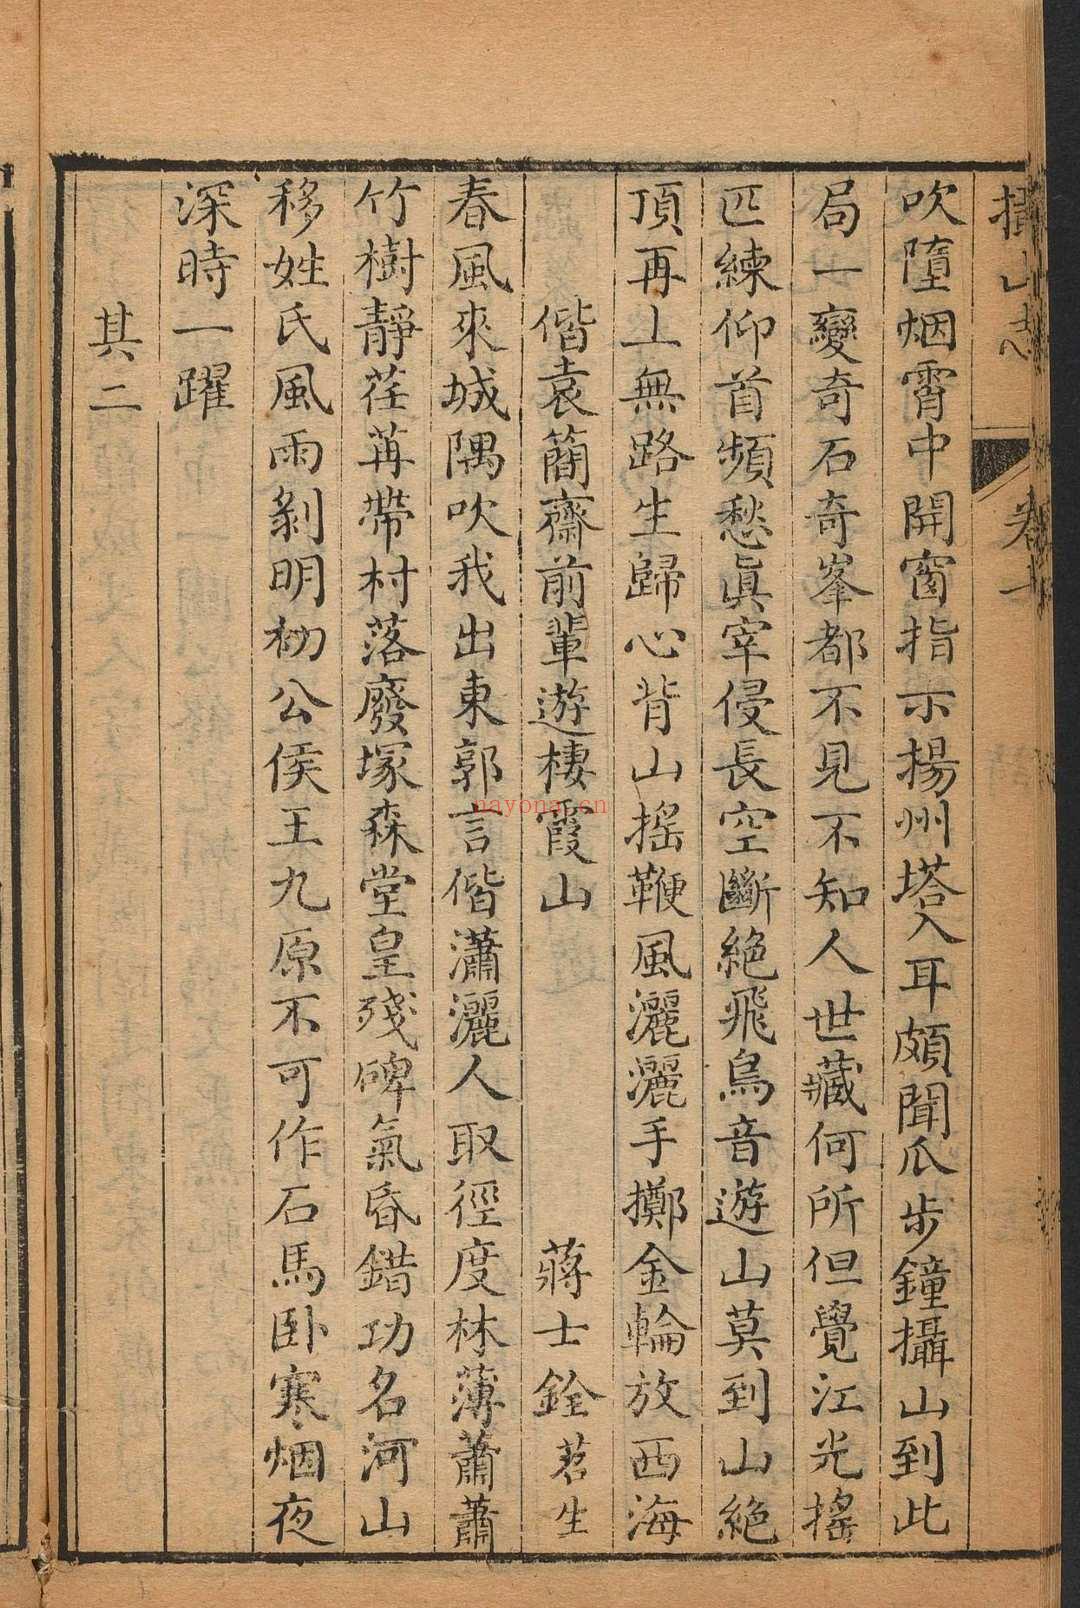 攝山志 卷一
吹墮烟霄中開窗指示揚州塔入耳頗聞瓜步鐘攝山到此
局一變奇石奇峯都不見不知人世藏何所但覺江光搖
匹練仰首頻愁眞宰侵長空斷絕飛鳥音遊山莫到山絕
頂再上無路生歸心背山搖鞭風灑灑手擲金輪放西海
偕袁蕳齋前輩遊棲霞山 蔣士銓 苕生
春風來城隅吹我出東郭言偕瀟灑人取徑度林薄蕭蕭
竹樹靜荏苒帶村落廢塚森堂皇殘碑氣昏錯功名河山
移姓氏風雨剝明初公侯王九原不可作石馬卧寒烟夜
深時一躍
其二
nayona.cn